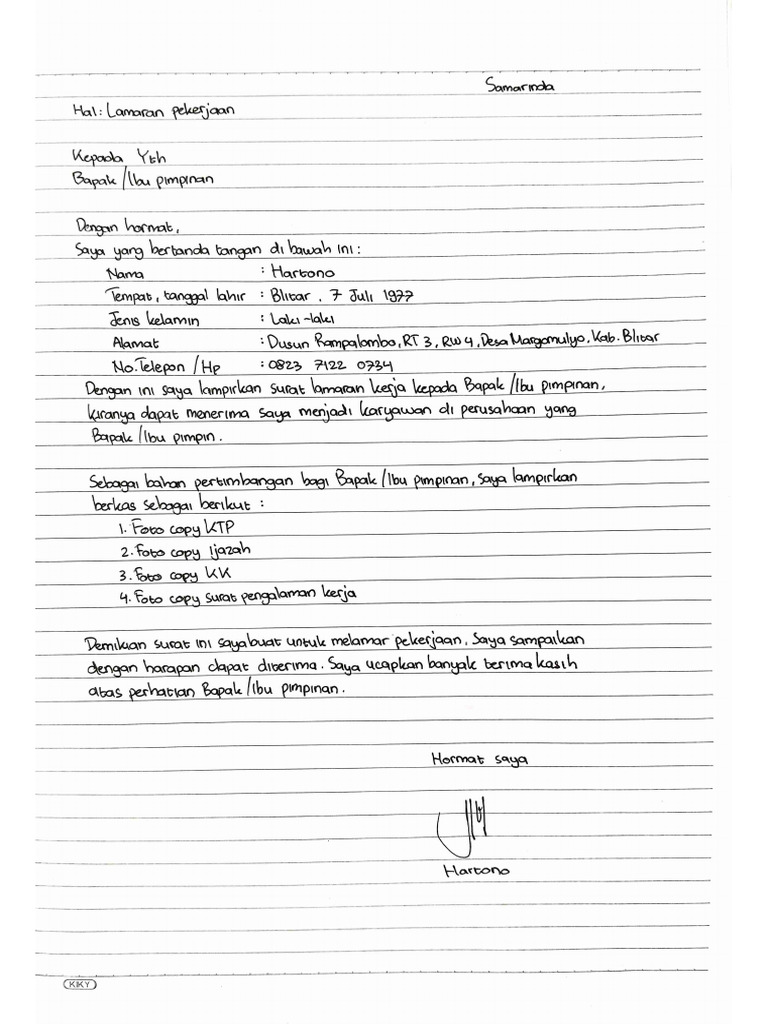 Samarinda
Hal: Lamaran pekerjaan
Kepada Yth
Bapak/Ibu pimpinan
Dengan hormat,
Saya yang bertanda tangan di bawah ini:
Nama : Hartono
Tempat, tanggal lahir : Blitar, 7 Juli 1977
Jenis kelamin : Laki-laki
Alamat : Dusun Rampalombo, RT 3, RW 4, Desa Margomulyo, Kab. Blitar
No. Telepon / Hp : 0823 7122 0734
Dengan ini saya lampirkan surat lamaran kerja kepada Bapak/Ibu pimpinan,
kiranya dapat menerima saya menjadi karyawan di perusahaan yang
Bapak/Ibu pimpin.
Sebagai bahan pertimbangan bagi Bapak/Ibu pimpinan, saya lampirkan
berkas sebagai berikut :
1. Foto copy KTP
2. Foto copy Ijazah
3. Foto copy KK
4. Foto copy surat pengalaman kerja
Demikian surat ini saya buat untuk melamar pekerjaan. Saya sampaikan
dengan harapan dapat diterima. Saya ucapkan banyak terima kasih
atas perhatian Bapak/Ibu pimpinan.
Hormat saya
Hartono
KIKY